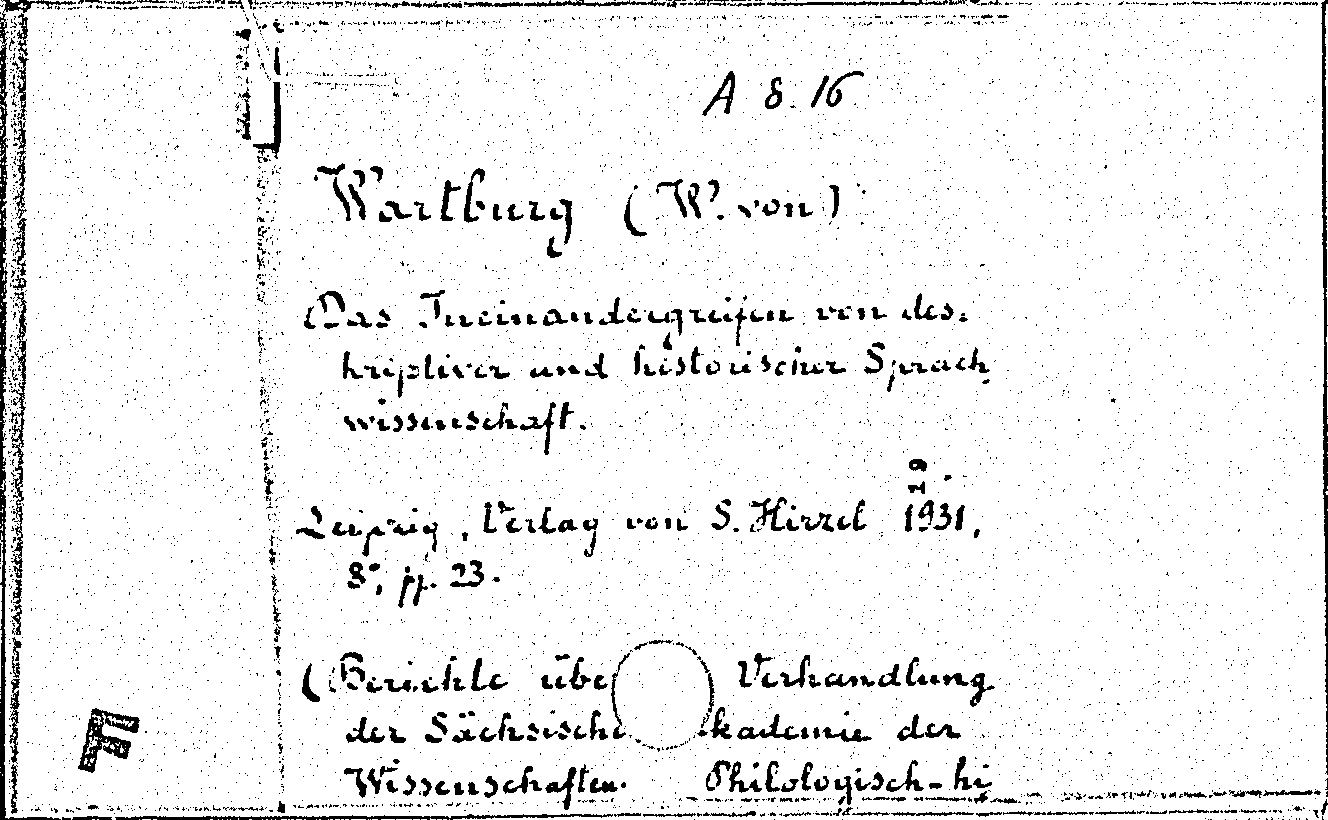 A 8. 16
Wartburg (W. von)
Das Ineinandergreifen von des-
kriptiver und historischer Sprach
wissenschaft.
Leipzig, Verlag von S. Hirzel 1931,
8°, pp. 23.
(Berichte übe Verhandlung
der Sächsische kademie der
Wissenschaften. Philologisch-hi
F